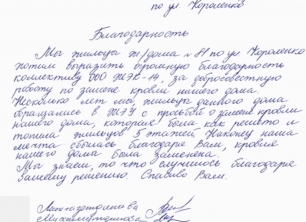 по ул Короленко
Благодарность
Мы жильцы ж/дома по ул Короленко
хотим выразить огромную благодарность
коллективу ООО ЖЭК-14, за добросовестную
работу по замене кровли нашего дома
Несколько лет мы, жильцы данного дома
обращались в ЖЭУ с просьбой о замене кровли
нашего дома, которая была как решето и
топила жильцов 5 этажей Наконец наша
мечта сбылась благодаря Вам, кровля
нашего дома была заменена.
Мы знаем, то что случилось благодаря
решению. Спасибо Вам.